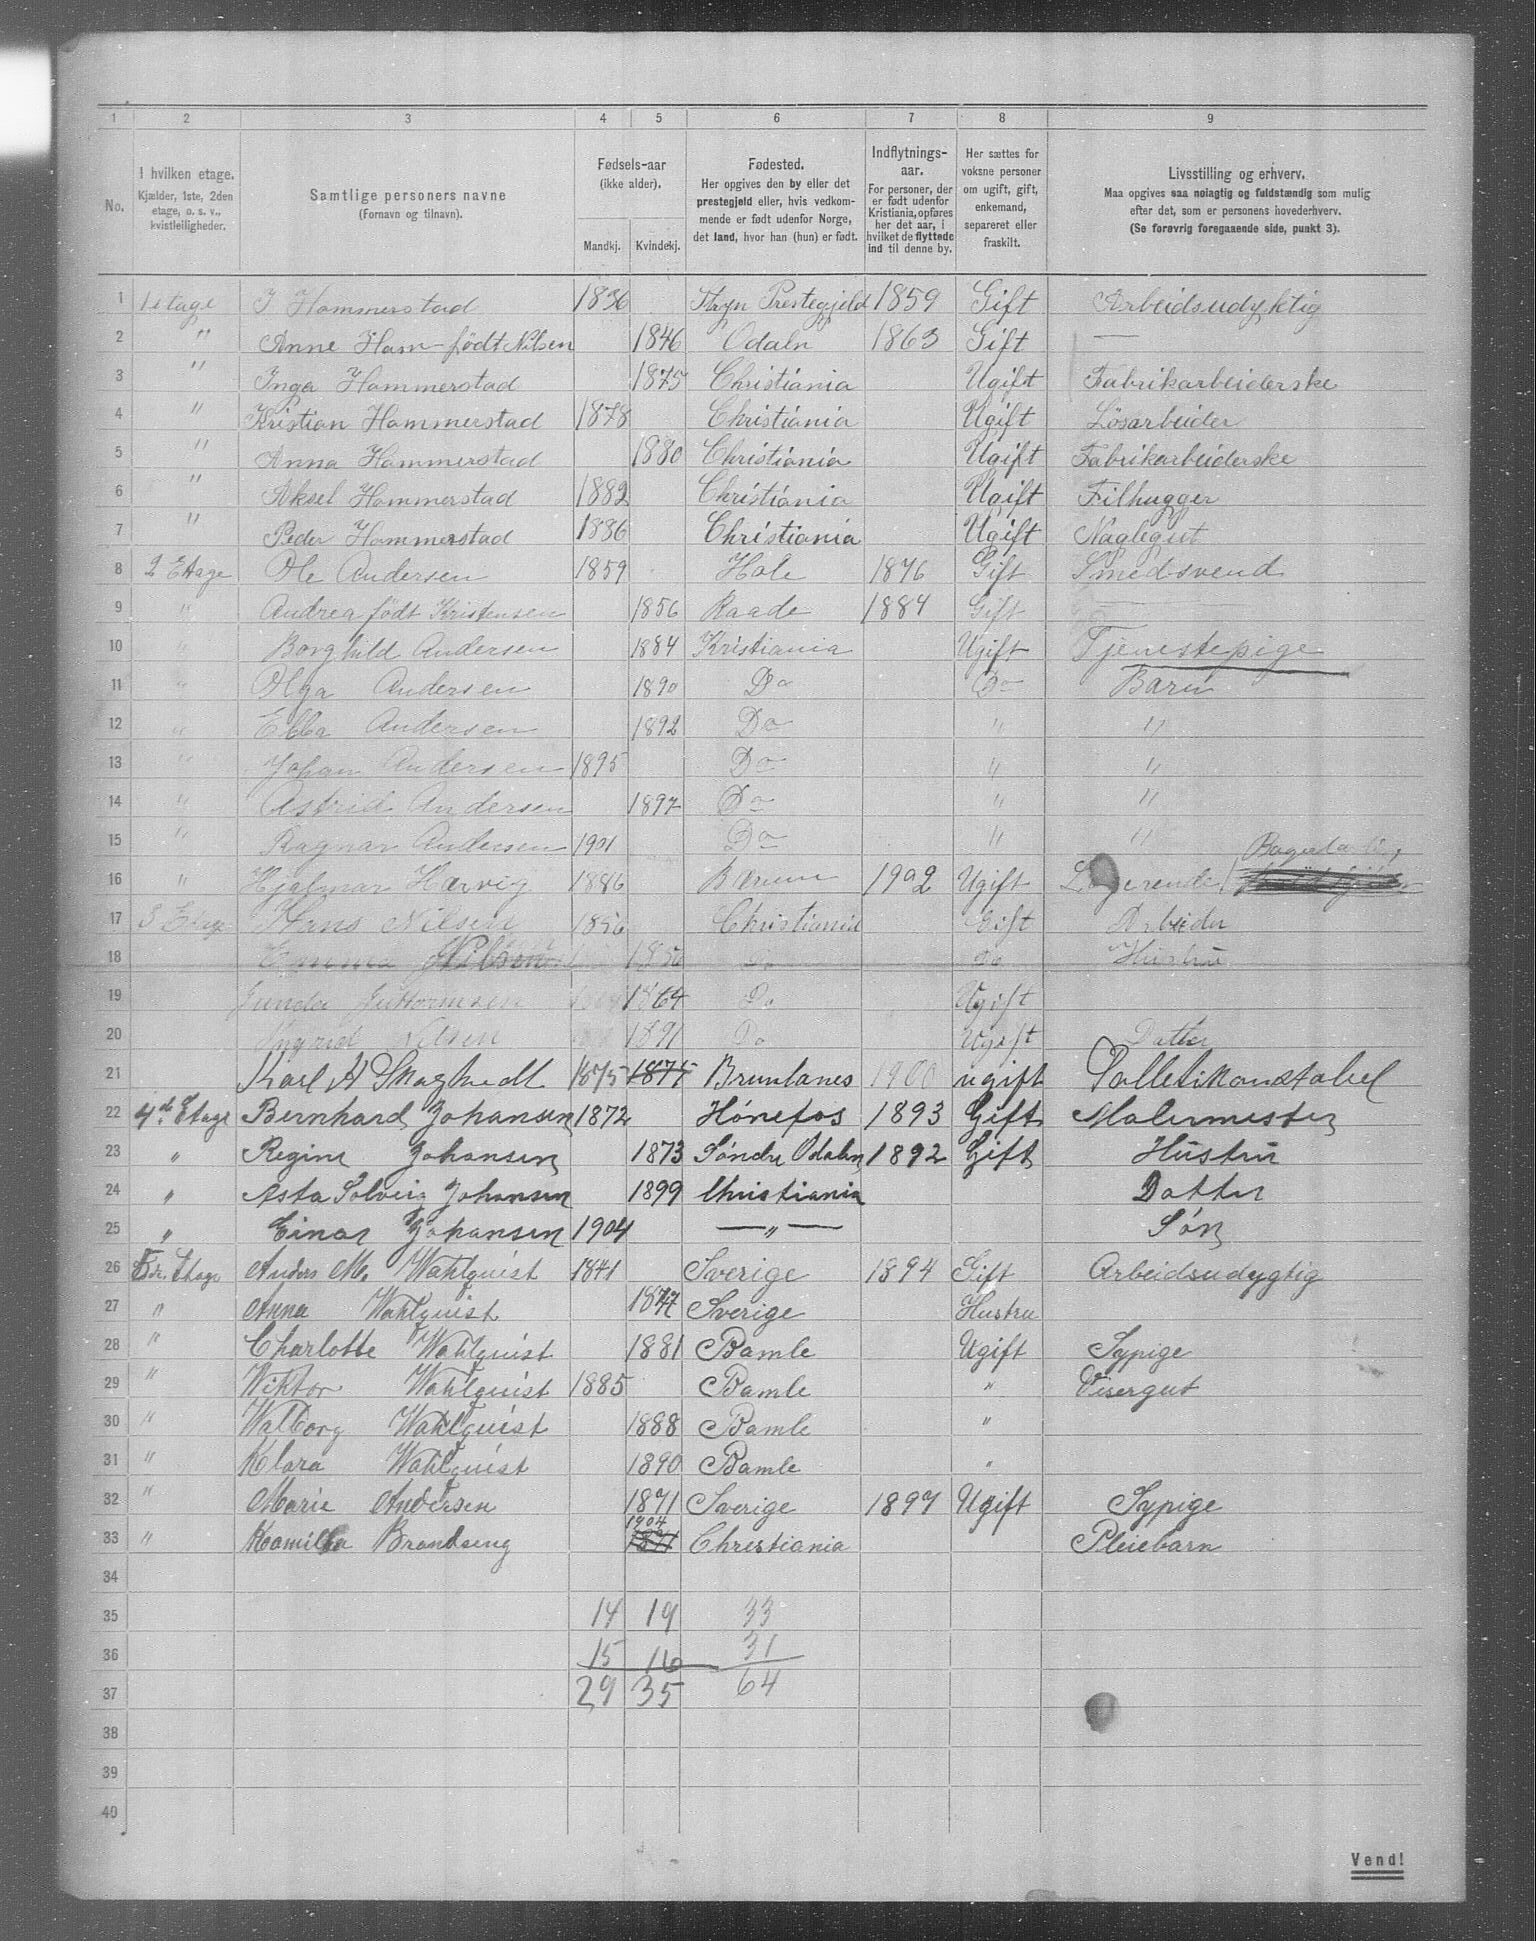 1 2 3 4 5 6 7 8 9
No.
I hvilken etage. Kjælder, 1ste, 2den etage, o. s. v., kvistleiligheder.
Samtlige personers navne (Fornavn og tilnavn).
Fødsels-aar (ikke alder). Mandkj. Kvindekj.
Fødested. Her opgives den by eller det prestegjeld eller, hvis vedkommende er født udenfor Norge, det land, hvor han (hun) er født.
Indflytnings-aar. For personer, der er født udenfor Kristiania, opføres her det aar, i hvilket de flyttede ind til denne by.
Her sættes for voksne personer om ugift, gift, enkemand, separeret eller fraskilt.
Livsstilling og erhverv. Maa opgives saa nøiagtig og fuldstændig som mulig efter det, som er personens hovederhverv. (Se forøvrig foregaaende side, punkt 3).
1 1 etage I Hammerstad 1836 Stryn Prestegjeld 1859 Gift Arbeidsudyktig
2 " Anne Ham- født Nilsen 1846 Odaln 1863 Gift —
3 " Inga Hammerstad 1875 Christiania Ugift Fabrikarbeiderske
4 " Kristian Hammerstad 1878 Christiania Ugift Lösarbeider
5 " Anna Hammerstad 1880 Christiania Ugift Fabrikarbeiderske
6 " Aksel Hammerstad 1882 Christiania Ugift Filhugger
7 " Peder Hammerstad 1886 Christiania Ugift Naglegut
8 2 Etage Ole Andersen 1859 Hole 1876 Gift Smedsvend
9 " Andrea født Kristensen 1856 Raade 1884 Gift
10 " Borghild Andersen 1884 Kristiania Ugift Tjenestepige
11 " Olga Andersen 1890 Do Do Barn
12 " Ebba Andersen 1892 Do " "
13 " Johan Andersen 1895 Do " "
14 " Astrid Andersen 1897 Do " "
15 " Ragnar Andersen 1901 Do " "
16 " Hjalmar Hærvig 1886 Bærum 1902 Ugift Logerende
17 3 Etage Hans Nilsen 1856 Christiania Gift Arbeider
18 Emma Nilsen 1856 Do Do Hustru
19 Guttormsen 1864 Do Ugift
20 Ingrid Nilsen 1891 Do Ugift Datter
21 Karl A 1875 1875 Brunlanes 1900 ugift Politikonstabel
22 4de Etage Bernhard Johansen 1872 Hónefos 1893 Gift Malermester
23 " Regine Johansen 1873 Söndre Odalen 1892 Gift Hustru
24 " Asta Solveig Johansen 1899 Christiania Datter
25 " Einar Johansen 1904 — " — Sön
26 5te. Etage Anders M. Wahlquist 1841 Sverige 1894 Gift Arbeidsudygtig
27 " Anna Wahlquist 1847 Sverige Hustru
28 " Charlotte Wahlquist 1881 Bamle Ugift Sypige
29 " Viktor Wahlquist 1885 Bamle " Visergut
30 " Walborg Wahlquist 1888 Bamle "
31 " Klara Wahlquist 1890 Bamle "
32 " Marie Andersen 1871 Sverige 1897 Ugift Sypige
33 " Kamilla Brandseng 1904 1871 Christiania Pleiebarn
34
35 14 19 33
36 15 16 31
37 29 35 64
38
39
40
Vend!